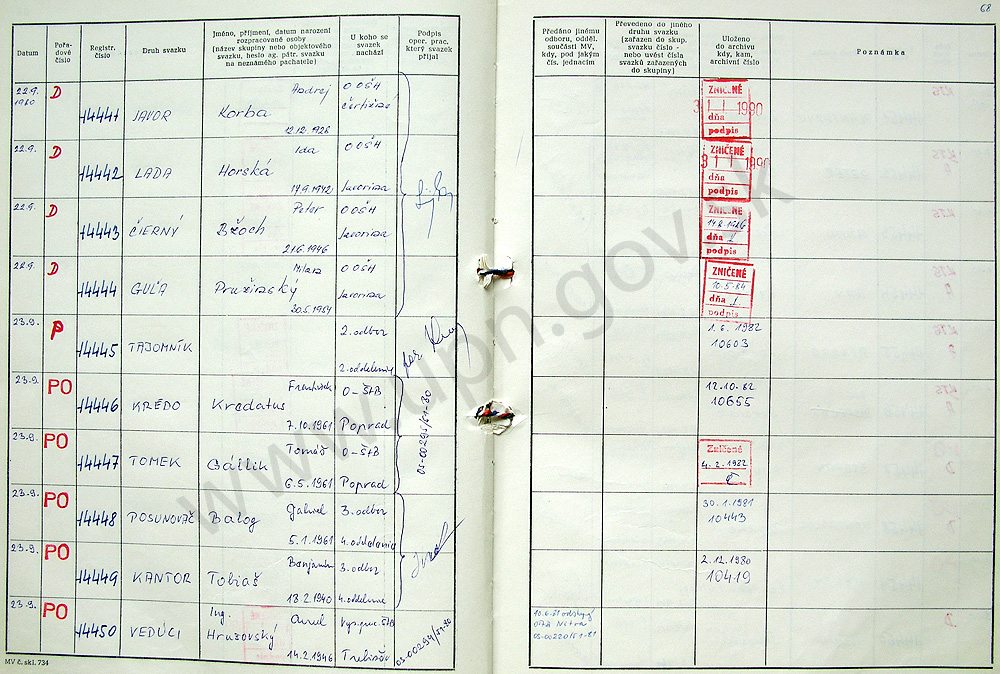 68
Datum
Pořa-
dové
číslo
Registr.
číslo
Druh svazku
Jméno, příjmení, datum narození
rozpracované osoby
(název skupiny nebo objektového
svazku, heslo ag. pátr. svazku
na neznámého pachatele)
U koho se
svazek
nachází
Podpis
oper. prac.
který svazek
přijal
Předáno jinému
odboru, odděl.
součásti MV,
kdy, pod jakým
čís. jednacím
Převedeno do jiného
druhu svazku
(zařazen do skup.
svazku číslo -
nebo uvést čísla
svazků zařazených
do skupiny)
Uloženo
do archivu
kdy, kam,
archivní číslo
Poznámka
22.9. 1980
D
14441
JAVOR
Andrej
Korba
12.12.1928
OOŠH
ZNIČENÉ
31 1 1990
dňa
podpis
22.9.
D
14442
LADA
Ida
Horská
17.9.1942
OOŠH
ZNIČENÉ
31 1 1990
dňa
podpis
22.9.
D
14443
ČIERNÝ
Peter
21.6.1946
OOŠH
ZNIČENE
dňa
podpis
22.9.
D
14444
GUĽA
Milan
Pruzinský
30.5.1954
OOŠH
ZNIČENÉ
10.5.84
dňa
podpis
23.9.
P
14445
TAJOMNÍK
2. odbor
2. oddelenie
1.6.1982
10603
23.9.
PO
14446
KRÉDO
František
Kredatus
7.10.1961
O-ŠtB
Poprad
05-00295/61-80
12.10.82
10655
23.9.
PO
14447
TOMEK
Tomáš
Gállik
6.5.1961
O-ŠtB
Poprad
Zničené
4.2.1982
23.9.
PO
14448
POSUNOVAČ
Gabriel
Balog
5.1.1961
3. odbor
4. oddelenie
30.1.1981
10443
23.9.
PO
14449
KANTOR
Benjamin
Tobiaš
18.2.1940
3. odbor
4. oddelenie
2.12.1980
10419
23.9.
PO
14450
VEDÚCI
Ing.
Hruzovský
14.2.1946
Trebišov
05-00294/61-80
05-00220/61-81
MV č. skl. 734
www.upn.gov.sk